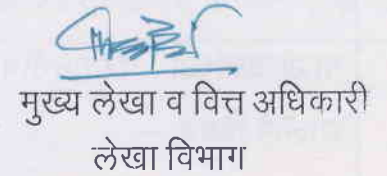 मुख्य लेखा व वित्त अधिकारी
लेखा विभाग